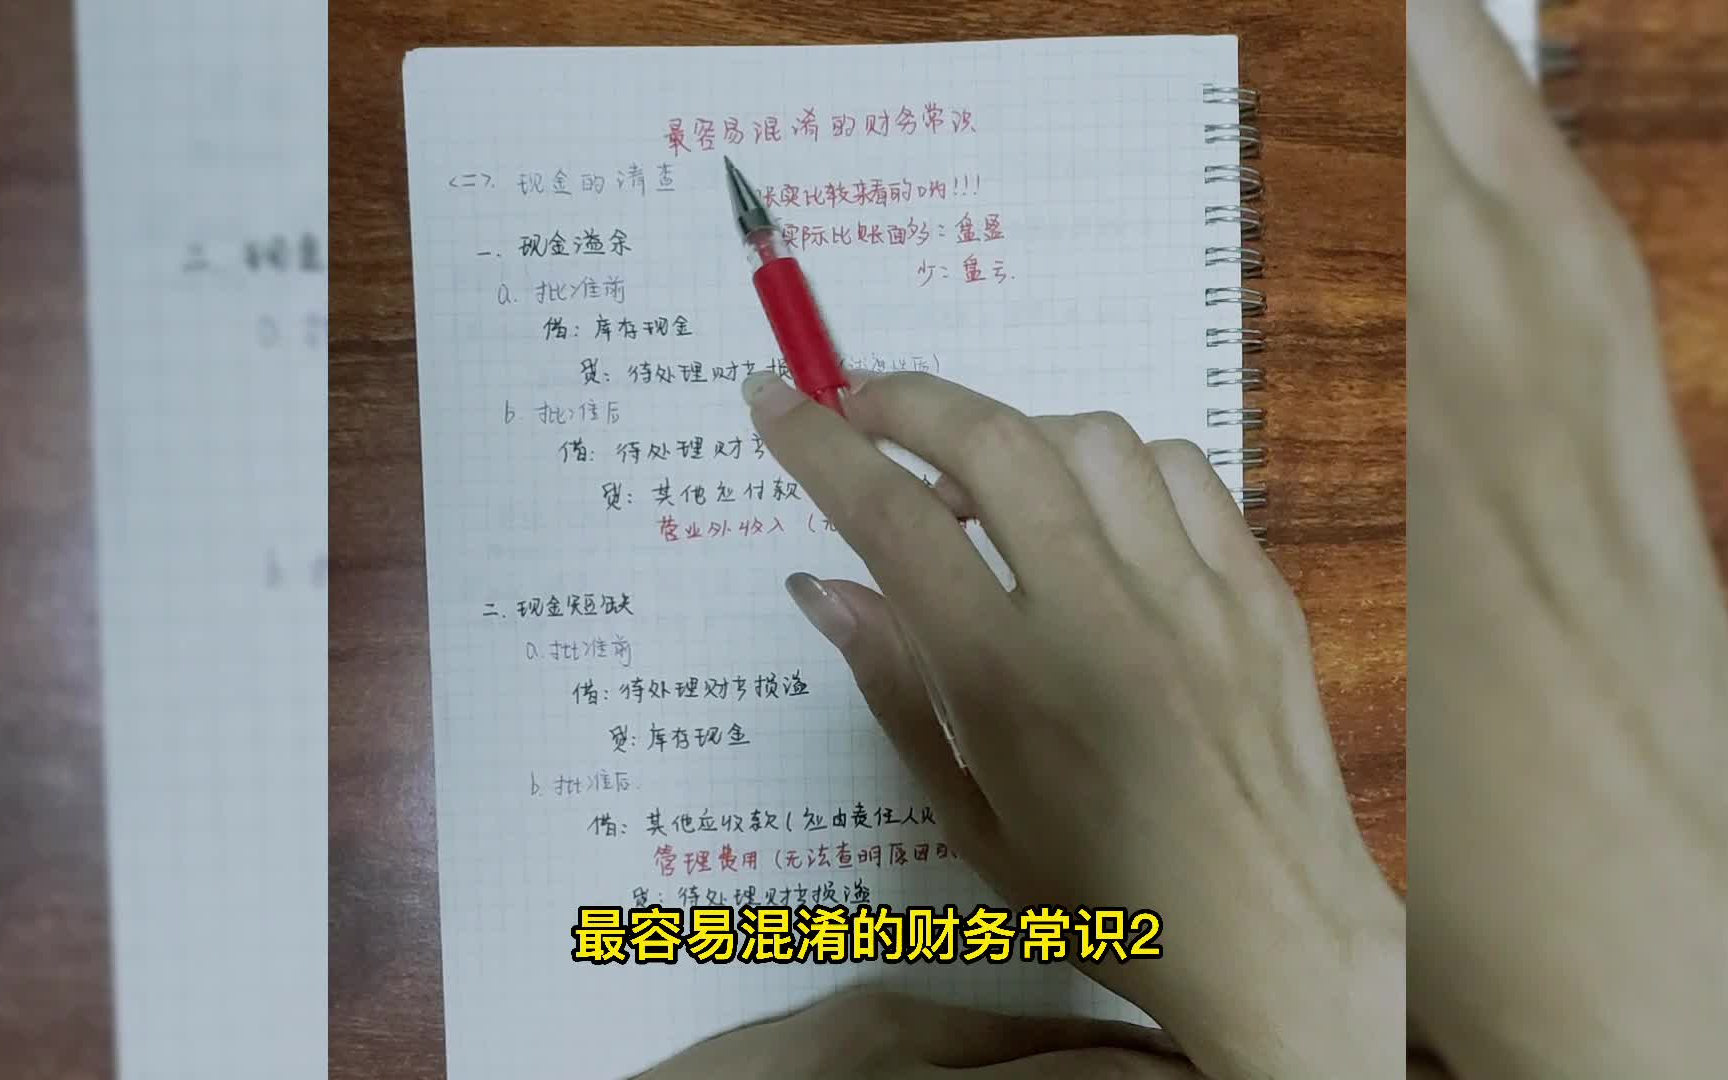 最容易混淆的财务常识
<二>. 现金的清查
账实比较来看的呐!!!
实际比账面多:盘盈
少:盘亏.
一. 现金溢余
a. 批准前
借:库存现金
贷:待处理财产损
b. 批准后
借:待处理财产
贷:其他应付款
营业外收入(无
二. 现金短缺
a. 批准前
借:待处理财产损溢
贷:库存现金
b. 批准后.
借:其他应收款(应由责任人
管理费用(无法查明原因的
贷:待处理财产损溢
最容易混淆的财务常识2